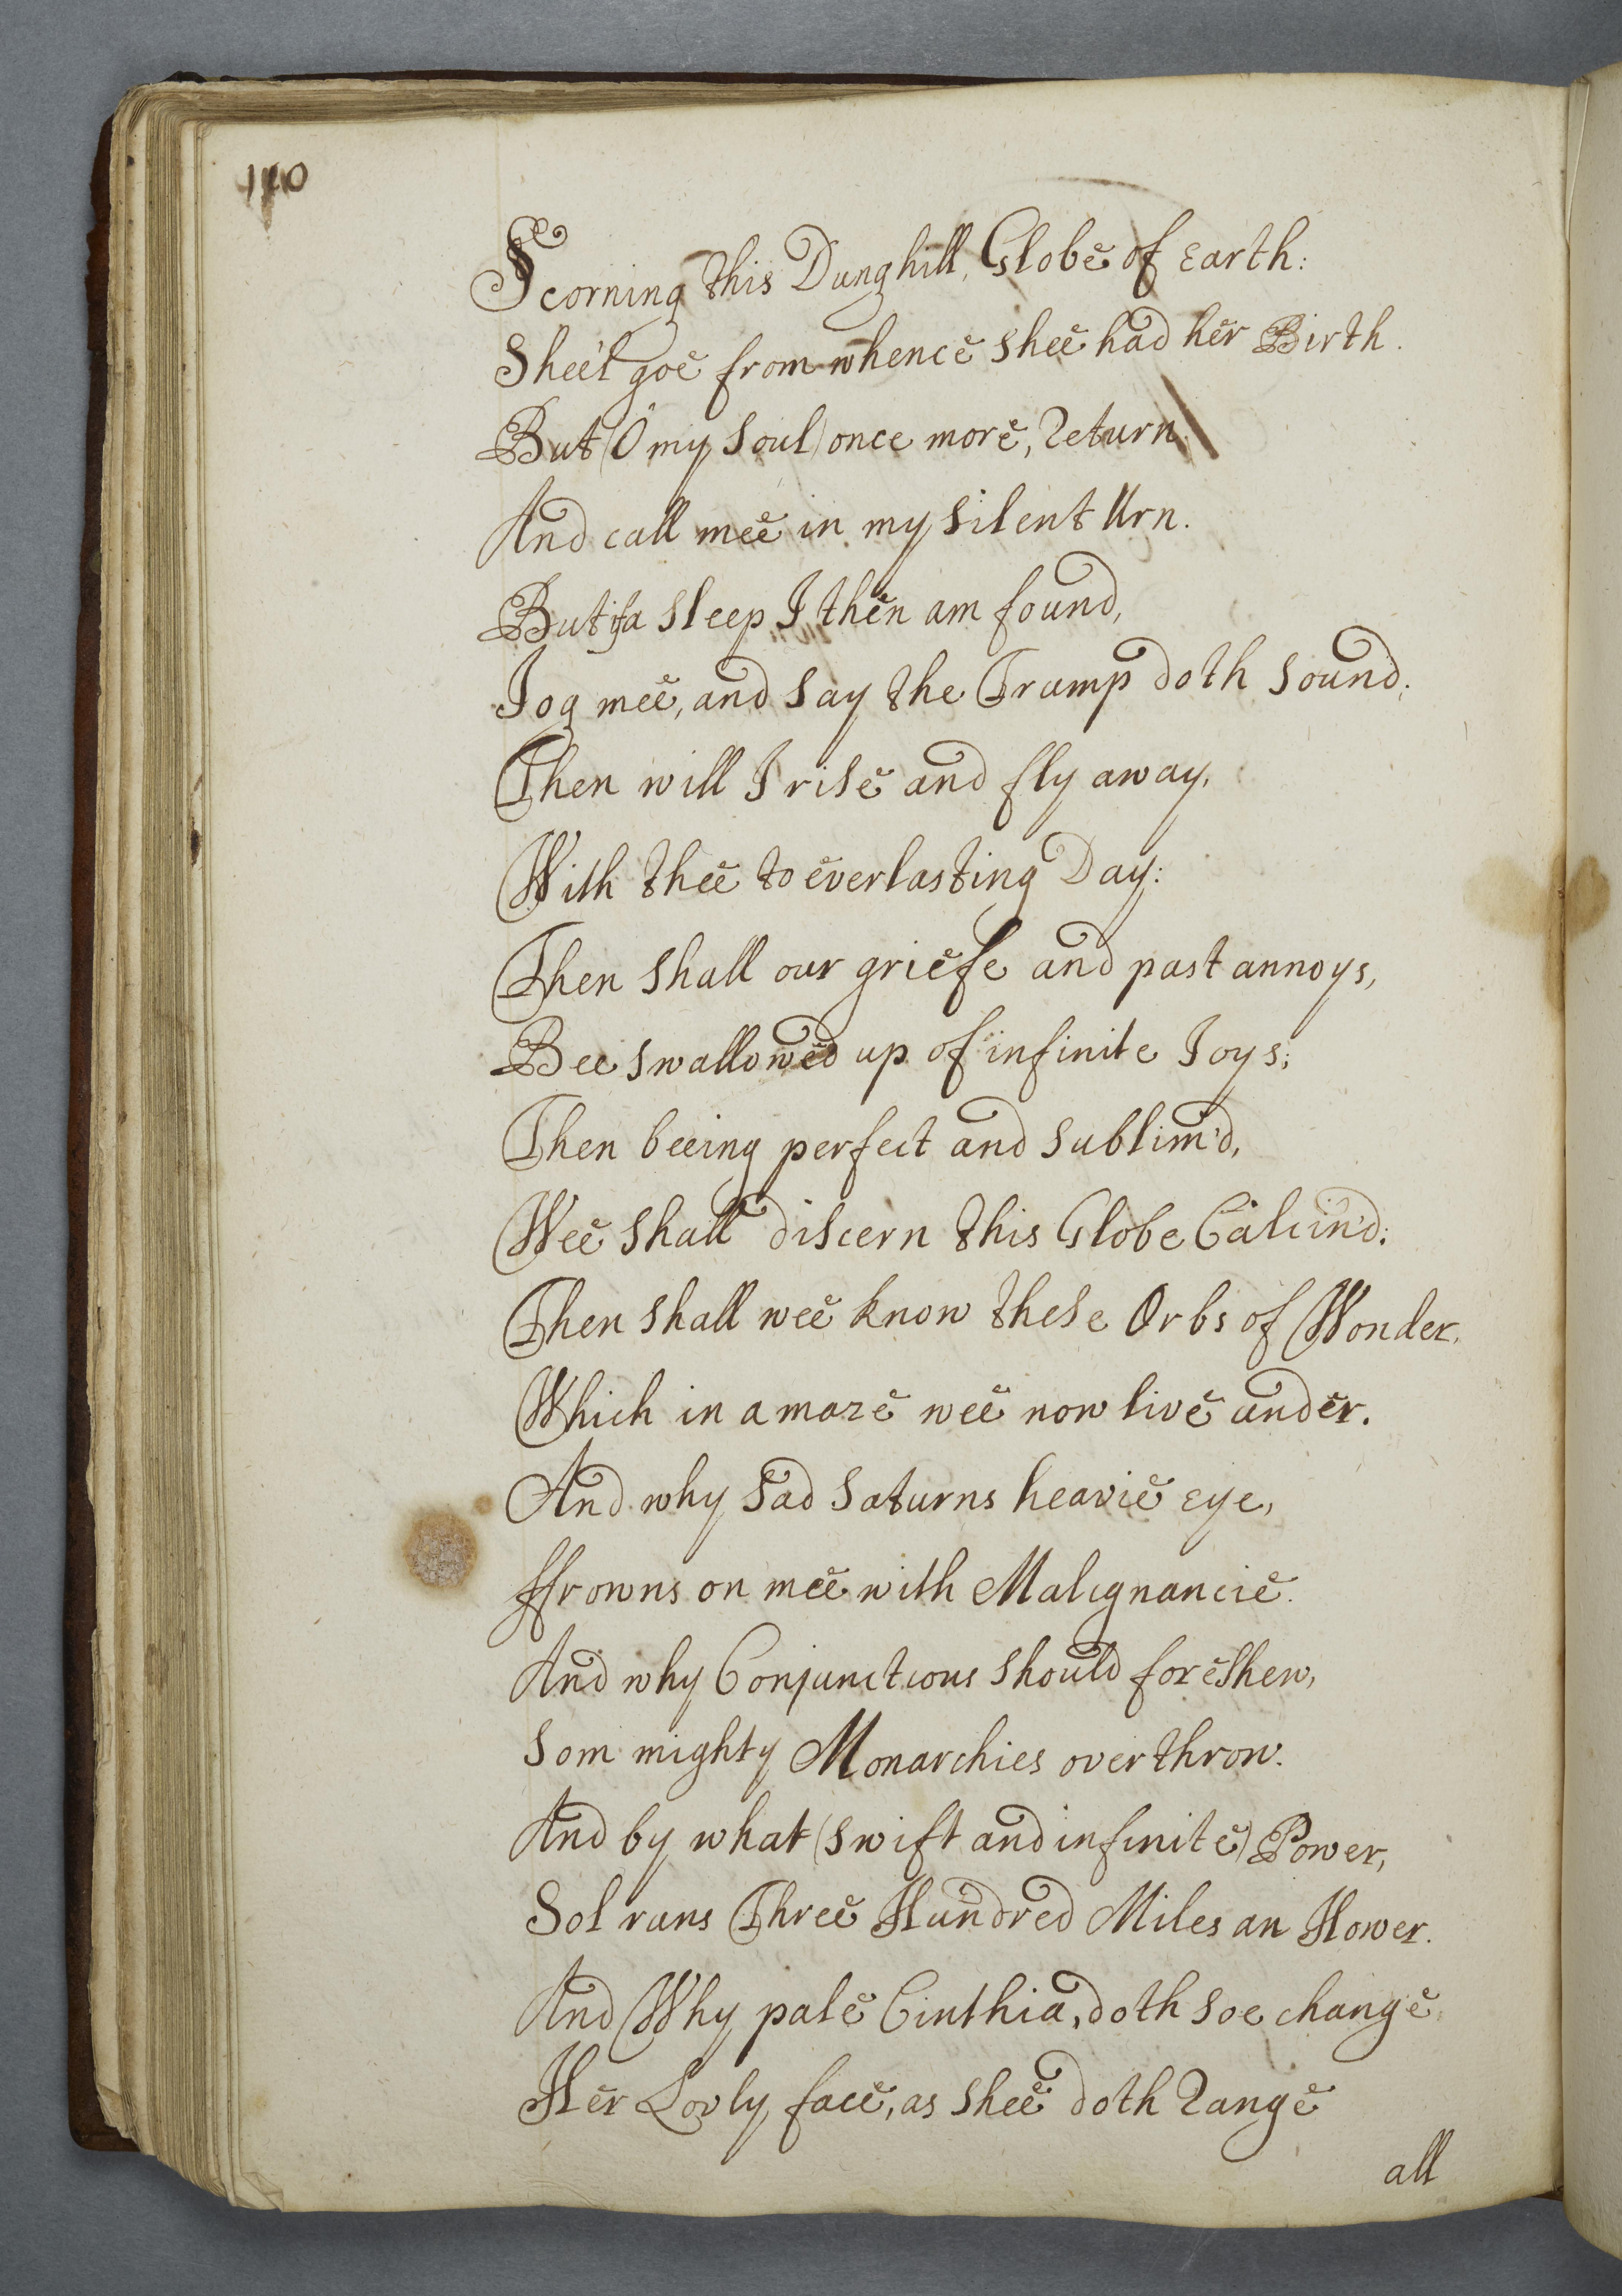 Scorning this Dunghill, Globe of Earth:
Shee'l goe from whence shee had her Birth.
But (O my Soul) once more, Return
And call mee in my silent Urn.
But if a sleep I then am found,
Jog mee, and say the Trump doth sound;
Then will I rise and fly away,
With thee to everlasting Day:
Then shall our griefe and past annoys,
Bee swallowed up of infinite Joys;
Then beeing perfect and sublim'd,
Wee shall discern this Globe Calcin'd:
Then shall wee know these Orbs of Wonder,
Which in amaze wee now live under.
And why sad Saturns heavie eye,
ffrowns on mee with Malignancie.
And why Conjunctions should foreshew,
Som mighty Monarchies overthrow.
And by what (swift and infinite) Power,
Sol runs Three Hundred Miles an Hower.
And Why pale Cinthia, doth soe change
Her Lovly face, as shee doth Range
all